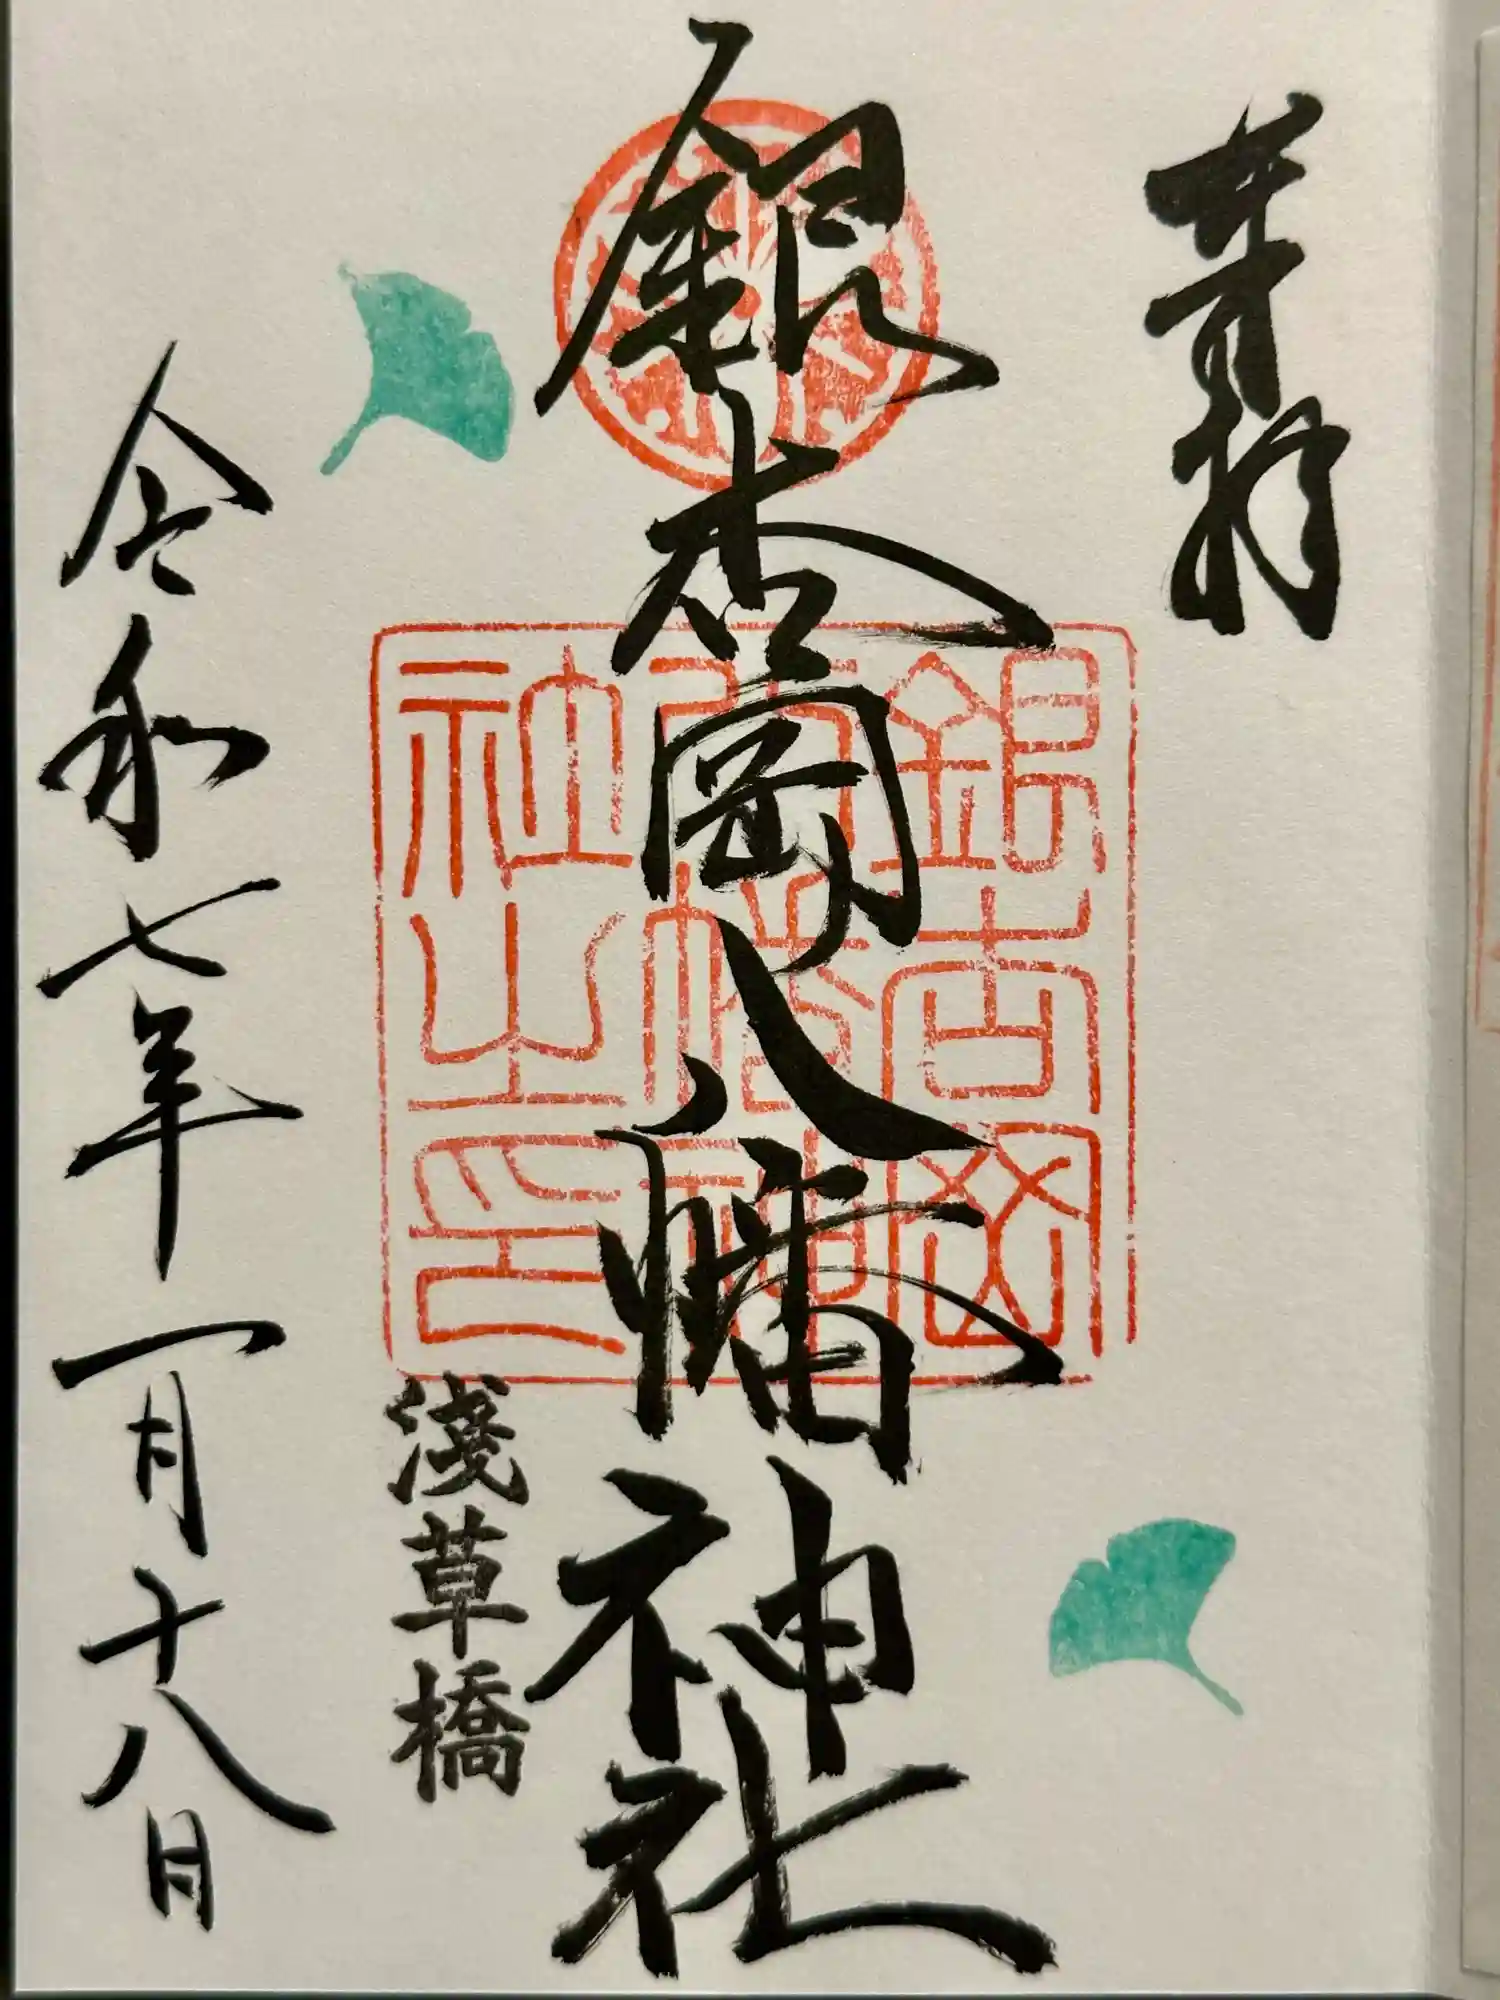 奉拝
銀杏岡八幡神社
銀杏岡
八幡神
社之印
淺草橋
令和七年一月十八日